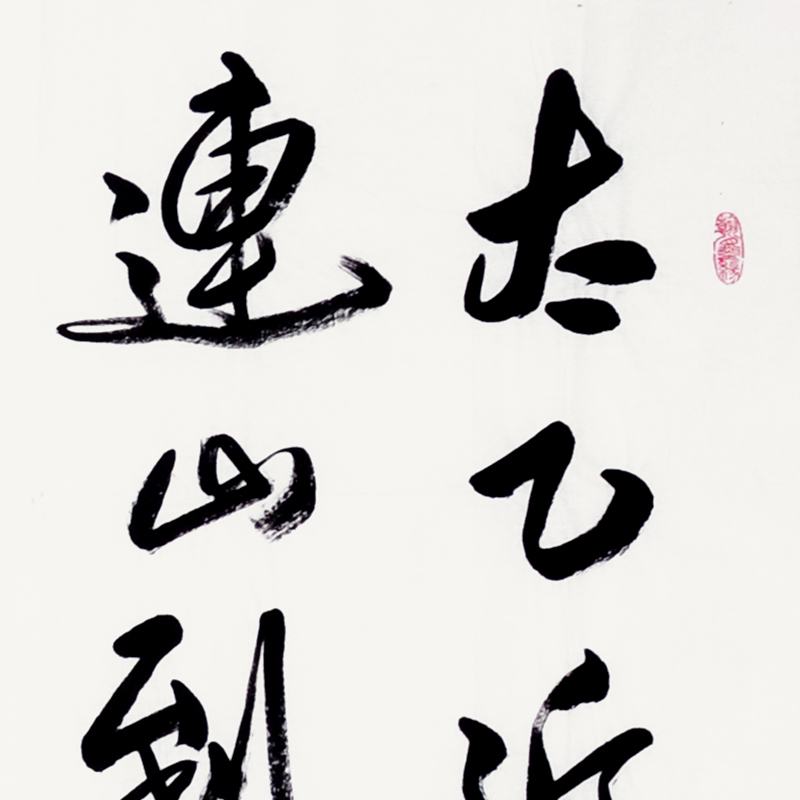 太乙近
連山到